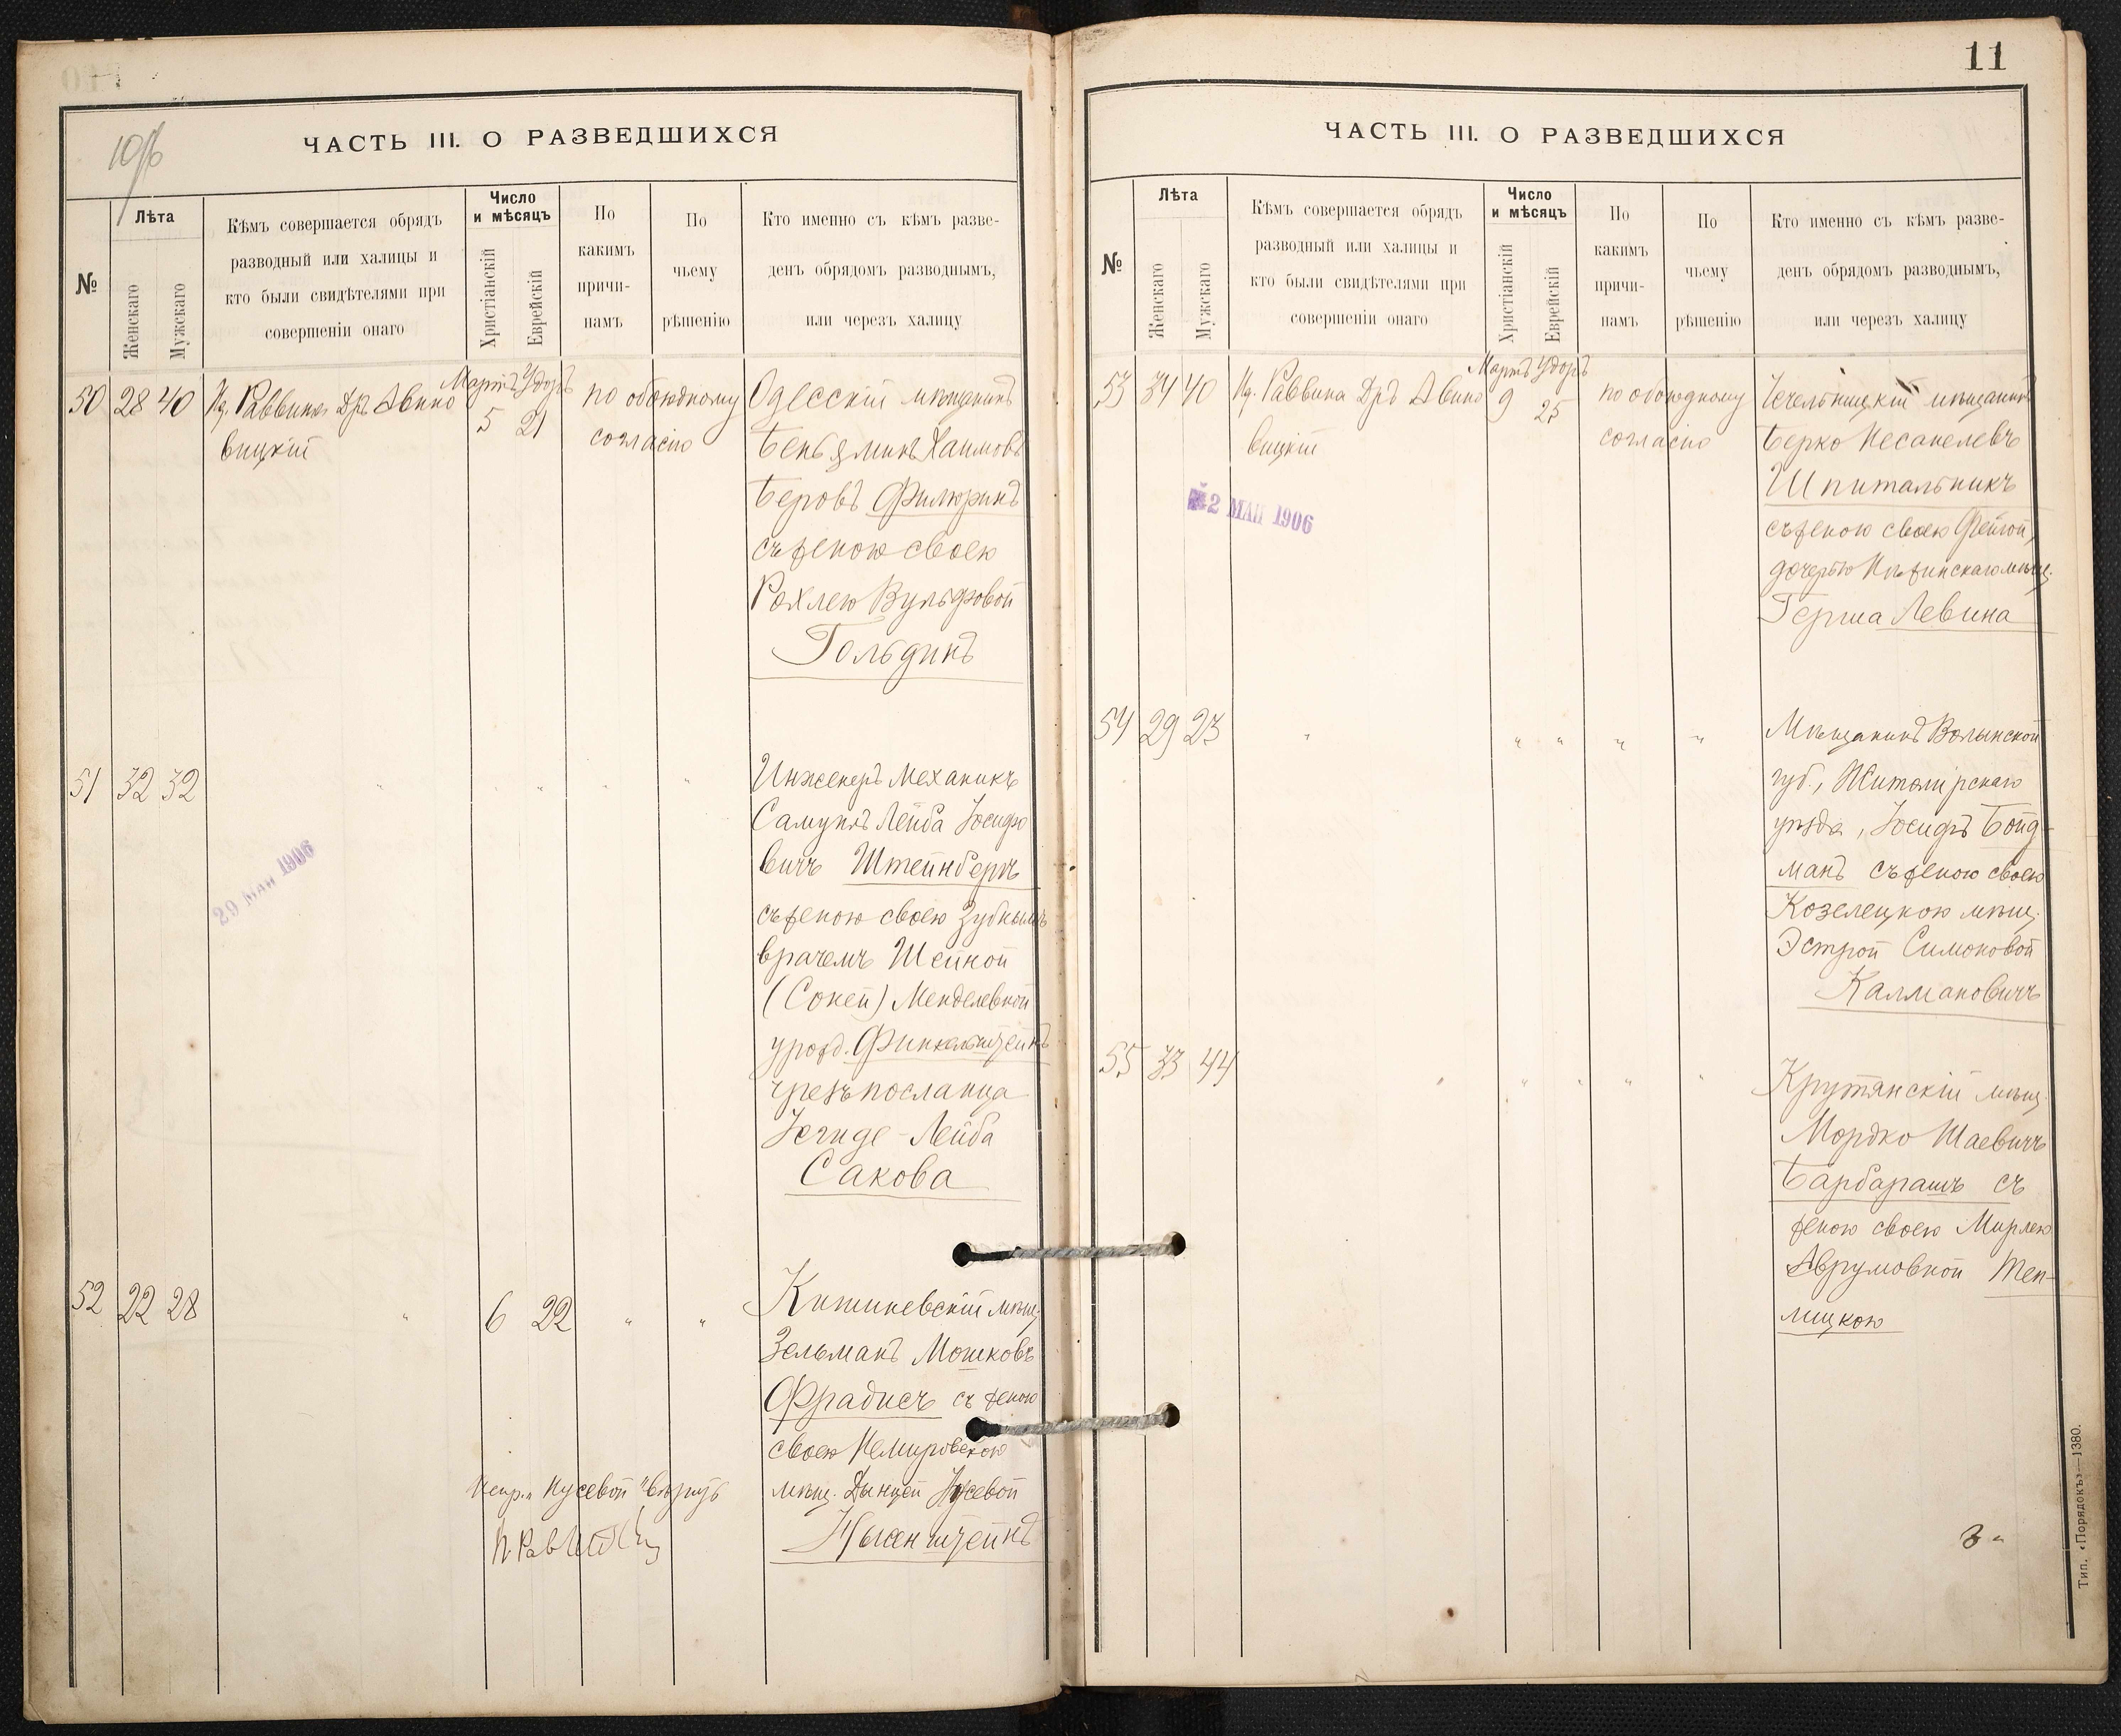 10об
ЧАСТЬ III. О РАЗВЕДШИХСЯ
№
Лѣта
Женскаго
Мужскаго
Кѣмъ совершается обрядъ
разводный или халицы и
кто были свидѣтелями при
совершеніи онаго
Число
и мѣсяцъ
Христіанскій
Еврейскій
По
какимъ
причи-
намъ
По
чьему
рѣшенію
Кто именно съ кѣмъ разве-
денъ обрядомъ разводнымъ,
или черезъ халицу
50 28 40 Раввина Др. Авино
вицкій
Мартъ Удоръ
5 21
по обоюдному
согласію
Одесскій мѣщанинъ
Беньяминъ Хаимовъ
Беровъ Филюринъ
съ женою своею
Рохлею Вульфовой
Гольдинъ
51 32 32 " " " "
29 МАЙ 1906
Инженеръ Механикъ
Самуилъ Лейба Іосифо
вичъ Штейнбергъ
съ женою своею зубнымъ
врачемъ Шейной
(Соней) Менделевной
урожд. Финкельштейнъ
чрезъ посланца
Лейба
Сакова
52 22 28 " 6 22 " "
Кишиневскій мѣщ.
Зельманъ Мошковъ
Фрадисъ съ женою
своею Немировскою
мѣщ.
Испр. "Нусевой" вѣрить
11
ЧАСТЬ III. О РАЗВЕДШИХСЯ
№
Лѣта
Женскаго
Мужскаго
Кѣмъ совершается обрядъ
разводный или халицы и
кто были свидѣтелями при
совершеніи онаго
Число
и мѣсяцъ
Христіанскій
Еврейскій
По
какимъ
причи-
намъ
По
чьему
рѣшенію
Кто именно съ кѣмъ разве-
денъ обрядомъ разводнымъ,
или черезъ халицу
53 34 40 Раввина Др. Авино
вицкій
Мартъ Удоръ
9 25
по обоюдному
согласію
2 МАЙ 1906
Чечельницкій мѣщанинъ
Берко Несанелевъ
Шпитальникъ
съ женою своею Фейгой,
дочерью Нѣжинскаго мѣщ.
Герша Левина
54 29 23 " " " " "
Мѣщанинъ Волынской
губ., Житомірскаго
уѣзда, Іосифъ Бойд-
манъ съ женою своею
Козелецкою мѣщ.
Эстрой Симоновой
Калмановичъ
55 33 44 " " " " "
Крутянскій мѣщ.
Мордко Шаевичъ
Барбарашъ съ
женою своею Мирлею
Аврумовной Теп-
лицкою
3
Тип. «Порядокъ»—1380.